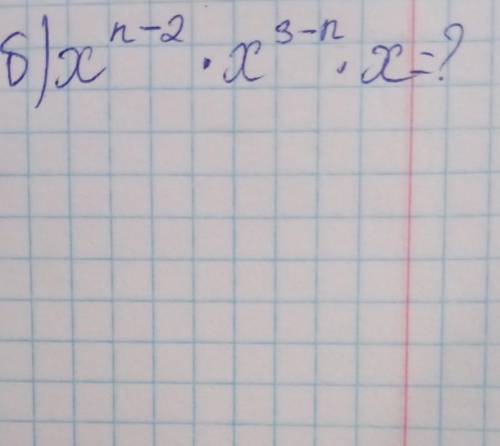 б) xⁿ⁻² · x³⁻ⁿ · x = ?